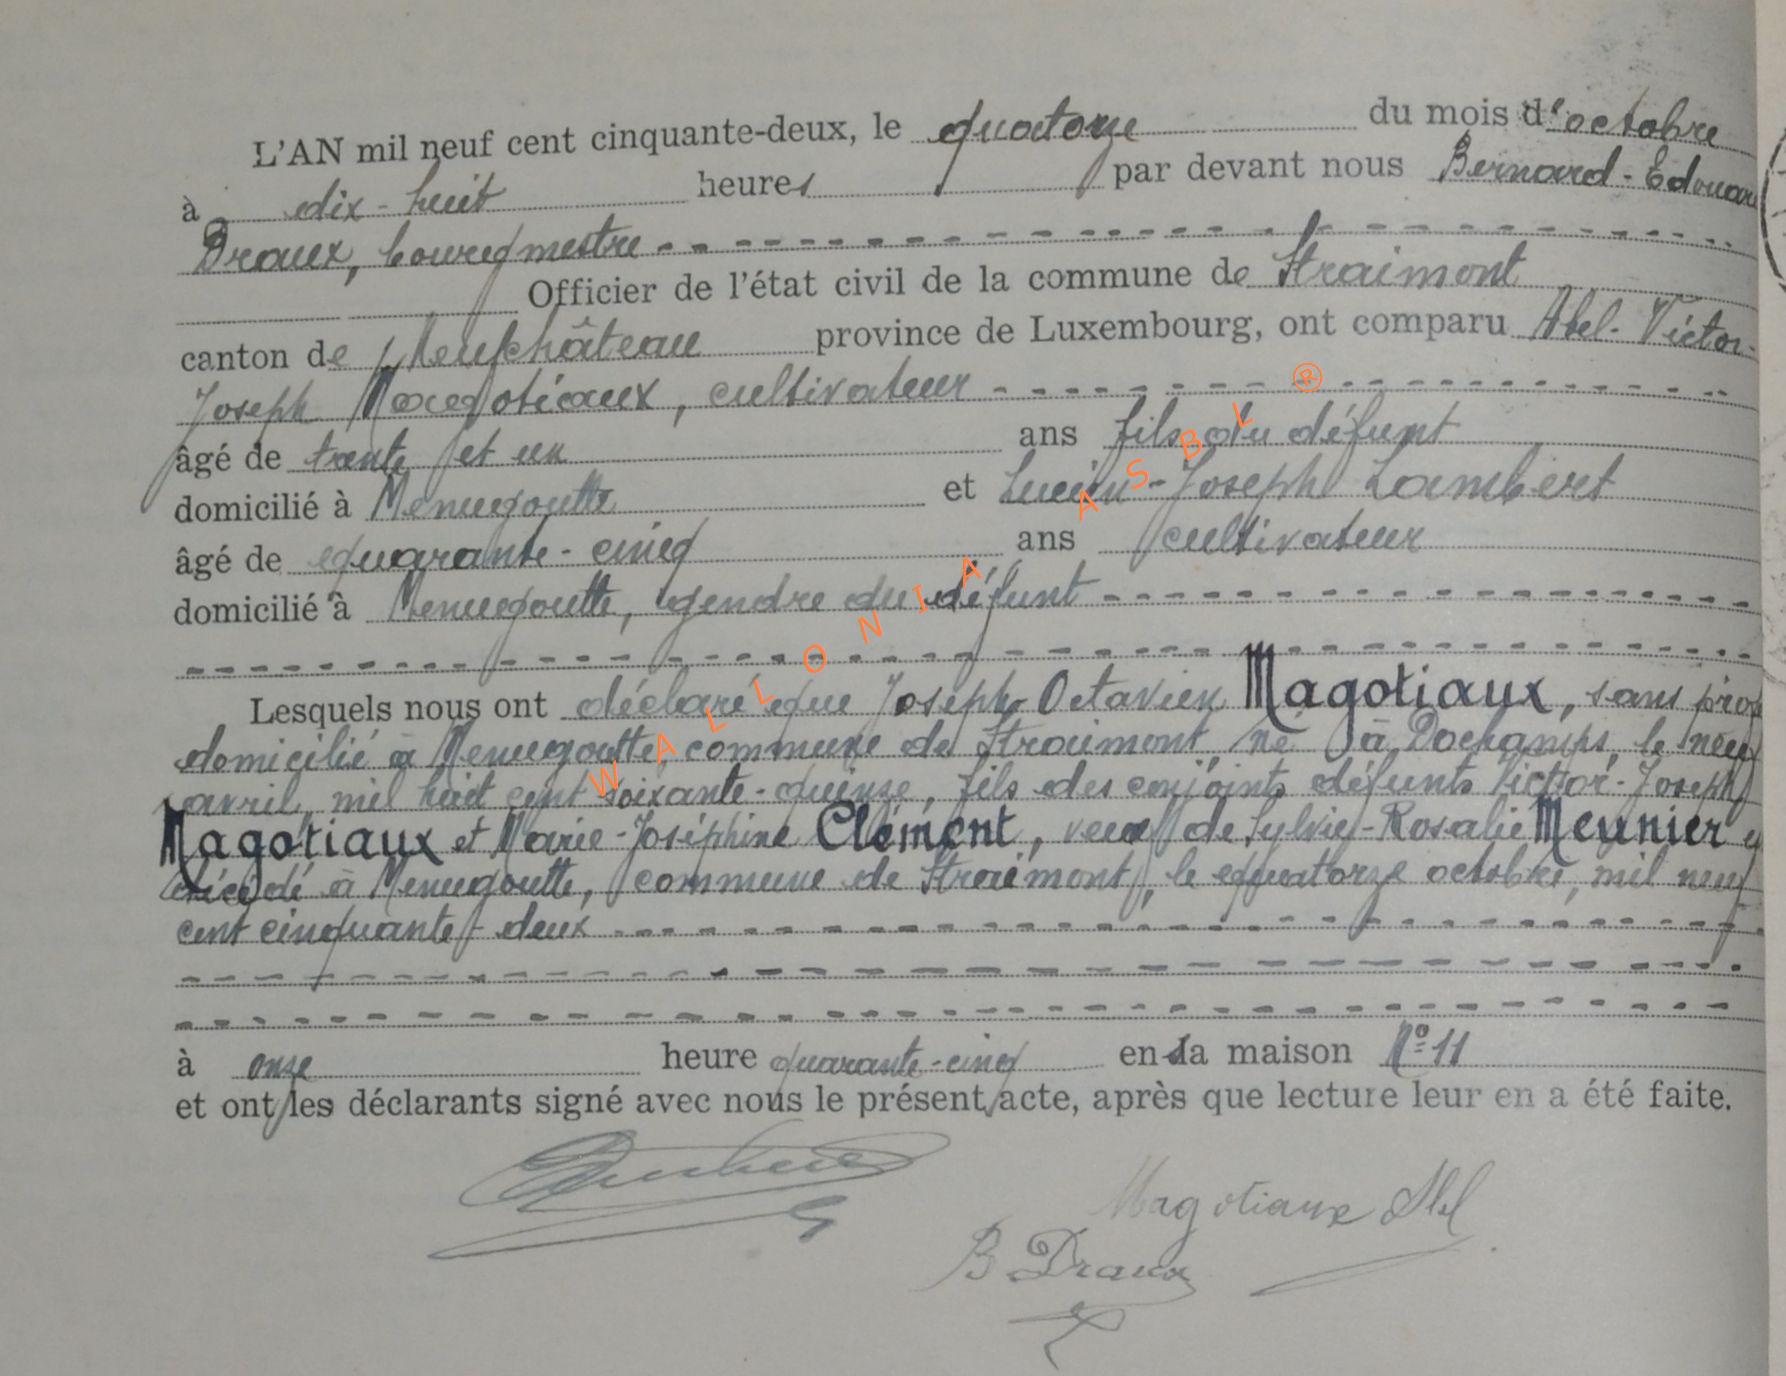 L'AN mil neuf cent cinquante-deux, le quatorze du mois d'octobre
à dix-huit heures par devant nous Bernard-Edouar
Draux, bourgmestre
Officier de l'état civil de la commune de Straimont
canton de Neufchâteau province de Luxembourg, ont comparu Abel-Victor-
Joseph Magotiaux, cultivateur
âgé de trente et un ans fils du défunt
domicilié à Menugoutte et Lucien-Joseph Lambert
âgé de quarante-cinq ans cultivateur
domicilié à Menugoutte, gendre du défunt
Lesquels nous ont déclaré que Joseph Octavien Magotiaux, sans prof
domicilié à Menugoutte, commune de Straimont, né à Dochamps, le neuf
avril mil huit cent soixante-quinze, fils des conjoints défunts Victor-Joseph
Magotiaux et Marie-Joséphine Clément, veuf de Sylvie-Rosalie Meunier
décédé à Menugoutte, commune de Straimont, le quatorze octobre, mil neuf
cent cinquante-deux
à onze heure quarante-cinq en la maison N° 11
et ont les déclarants signé avec nous le présent acte, après que lecture leur en a été faite.
Magotiaux Abel
B Draux
WALLONIA ASBL ®